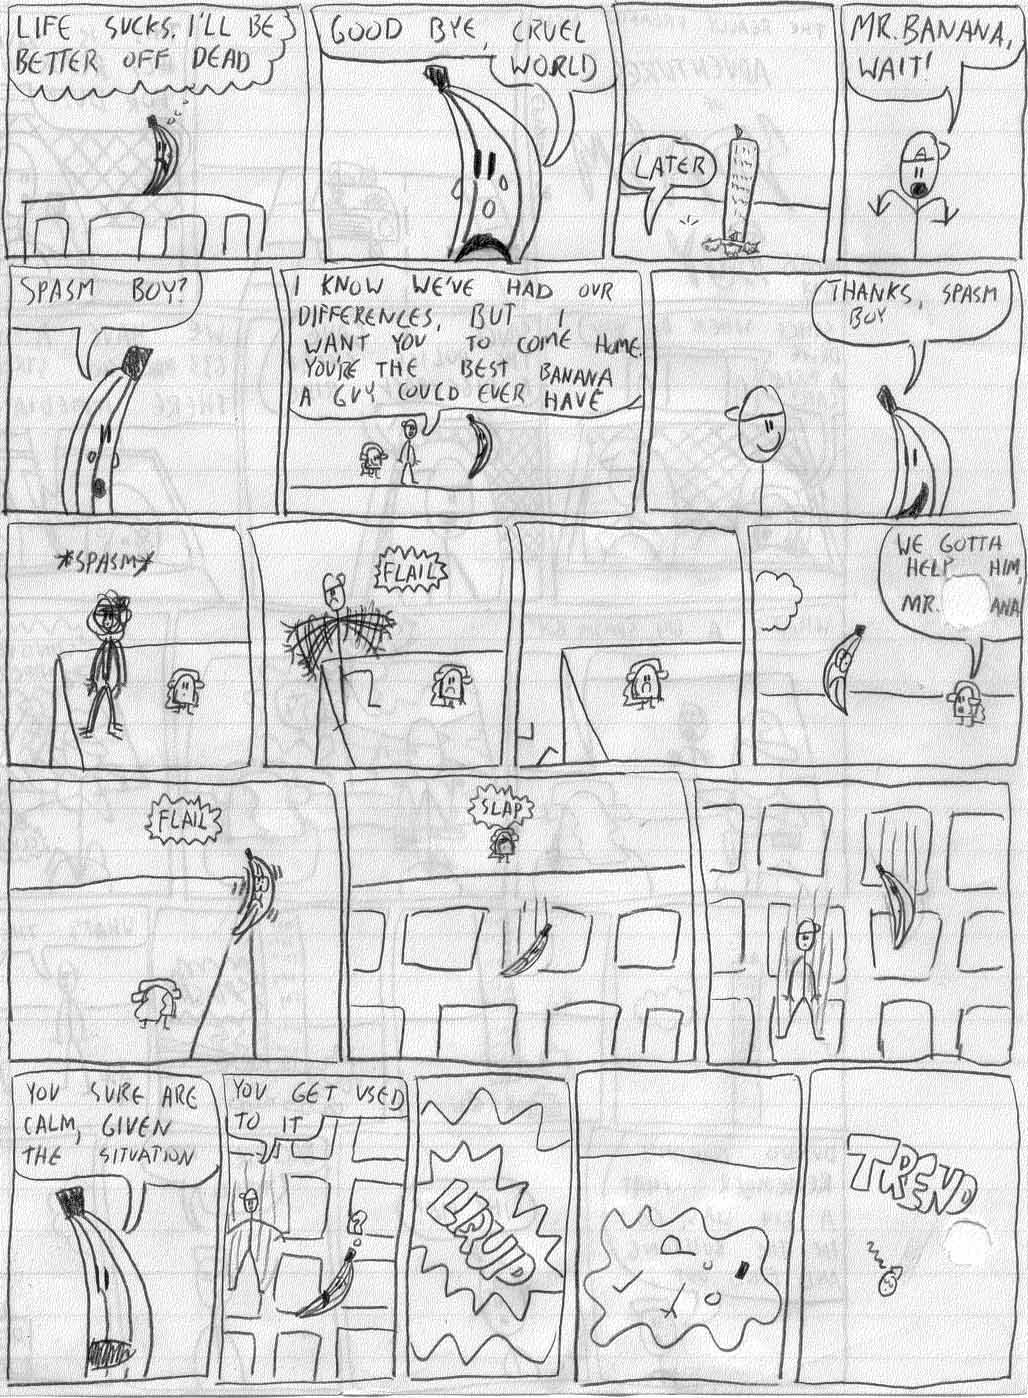 LIFE SUCKS. I'LL BE
BETTER OFF DEAD
GOOD BYE, CRUEL
WORLD
LATER
MR. BANANA,
WAIT!
SPASM BOY?
I KNOW WE'VE HAD OUR
DIFFERENCES, BUT I
WANT YOU TO COME HOME.
YOU'RE THE BEST BANANA
A GUY COULD EVER HAVE
THANKS, SPASM
BOY
*SPASM*
FLAIL
WE GOTTA
HELP HIM,
MR. ANA
FLAIL
SLAP
YOU SURE ARE
CALM, GIVEN
THE SITUATION
YOU GET USED
TO IT
?
LIQUID
TREND